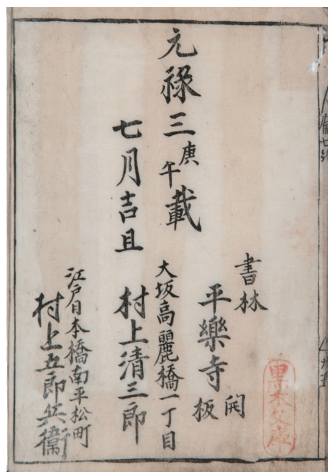 元祿三庚午載
七月吉且
書林
平樂寺開板
大坂高麗橋一丁目
村上清三郎
江戸日本橋南平松町
村上五郎兵衛
黒木文庫